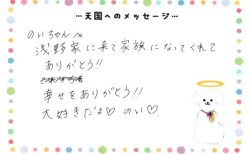 …天国へのメッセージ…
のいちゃんへ
浅野家に来て家族になってくれて
ありがとう!!
幸せをありがとう!!
大好きだよ♡ のい♡